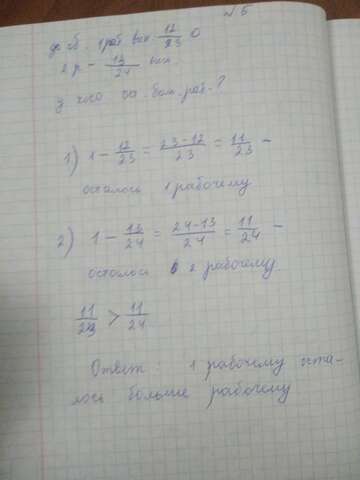 №5
1 раб вып. 12/23
2 р - 13/24 вып
у кого ост. бол. раб.?
1) 1 - 12/23 = 23-12/23 = 11/23 -
осталось 1 рабочему
2) 1 - 13/24 = 24-13/24 = 11/24 -
осталось 2 рабочему
11/23 > 11/24
Ответ: 1 рабочему оста-
лось больше рабочему